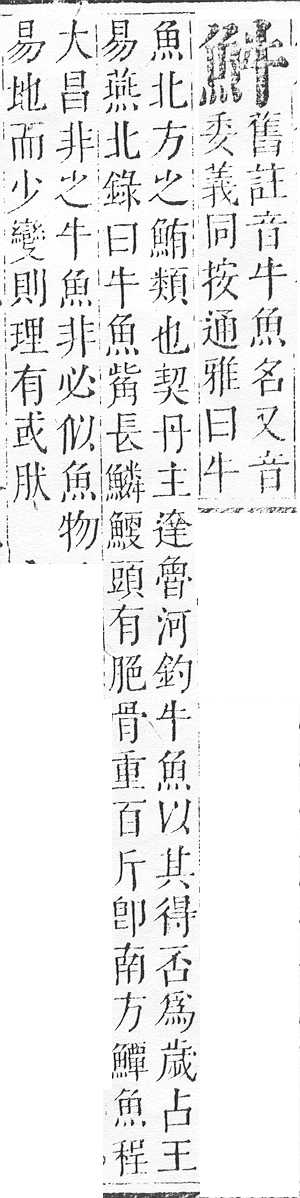 䰻
舊註音牛魚名又音
委義同按通雅曰牛
魚北方之鮪類也契丹主達魯河釣牛魚以其得否爲歲占王
易燕北錄曰牛魚觜長鱗鯁頭有脃骨重百斤卽南方鱏魚程
大昌非之牛魚非必似魚物
易地而少變則理有或肰